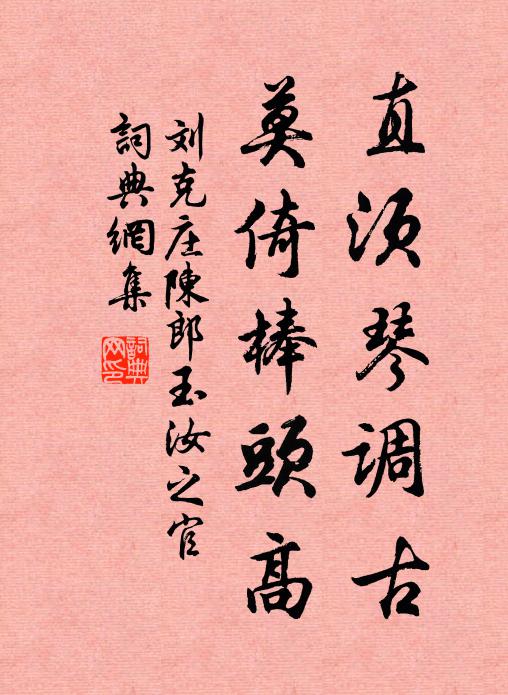 直须琴调古
莫倚棒頭高
刘克庄陳郎玉汝之官
詞典網集
詞典網印